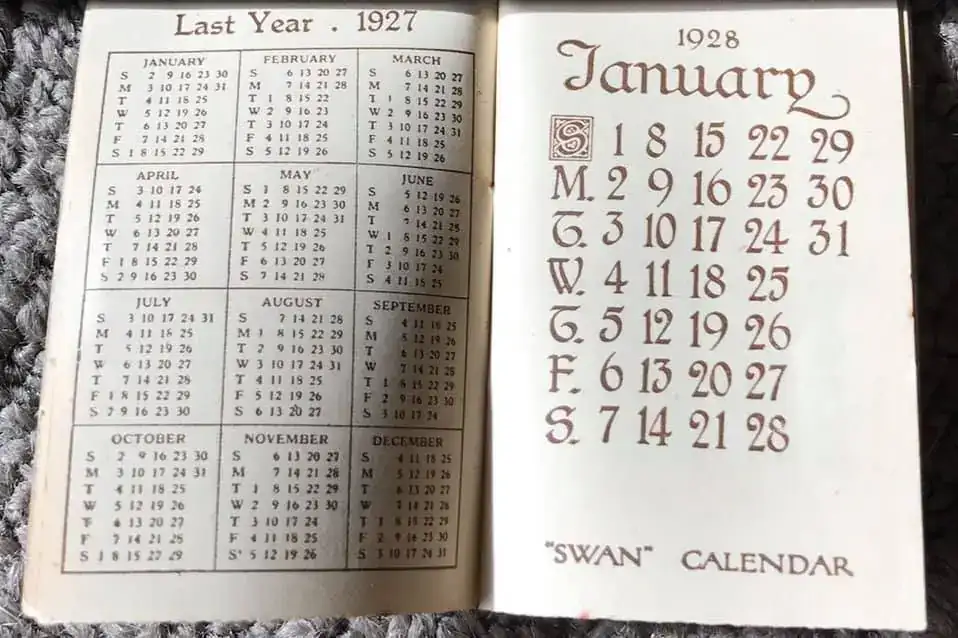 Last Year . 1927
JANUARY
S 2 9 16 23 30
M 3 10 17 24 31
T 4 11 18 25
W 5 12 19 26
T 6 13 20 27
F 7 14 21 28
S 1 8 15 22 29
FEBRUARY
S 6 13 20 27
M 7 14 21 28
T 1 8 15 22
W 2 9 16 23
T 3 10 17 24
F 4 11 18 25
S 5 12 19 26
MARCH
S 6 13 20 27
M 7 14 21 28
T 1 8 15 22 29
W 2 9 16 23 30
T 3 10 17 24 31
F 4 11 18 25
S 5 12 19 26
APRIL
S 3 10 17 24
M 4 11 18 25
T 5 12 19 26
W 6 13 20 27
T 7 14 21 28
F 1 8 15 22 29
S 2 9 16 23 30
MAY
S 1 8 15 22 29
M 2 9 16 23 30
T 3 10 17 24 31
W 4 11 18 25
T 5 12 19 26
F 6 13 20 27
S 7 14 21 28
JUNE
S 5 12 19 26
M 6 13 20 27
T 7 14 21 28
W 1 8 15 22 29
T 2 9 16 23 30
F 3 10 17 24
S 4 11 18 25
JULY
S 3 10 17 24 31
M 4 11 18 25
T 5 12 19 26
W 6 13 20 27
T 7 14 21 28
F 1 8 15 22 29
S 2 9 16 23 30
AUGUST
S 7 14 21 28
M 1 8 15 22 29
T 2 9 16 23 30
W 3 10 17 24 31
T 4 11 18 25
F 5 12 19 26
S 6 13 20 27
SEPTEMBER
S 4 11 18 25
M 5 12 19 26
T 6 13 20 27
W 7 14 21 28
T 1 8 15 22 29
F 2 9 16 23 30
S 3 10 17 24
OCTOBER
S 2 9 16 23 30
M 3 10 17 24 31
T 4 11 18 25
W 5 12 19 26
T 6 13 20 27
F 7 14 21 28
S 1 8 15 22 29
NOVEMBER
S 6 13 20 27
M 7 14 21 28
T 1 8 15 22 29
W 2 9 16 23 30
T 3 10 17 24
F 4 11 18 25
S 5 12 19 26
DECEMBER
S 4 11 18 25
M 5 12 19 26
T 6 13 20 27
W 7 14 21 28
T 1 8 15 22 29
F 2 9 16 23 30
S 3 10 17 24 31
1928
January
S 1 8 15 22 29
M. 2 9 16 23 30
T. 3 10 17 24 31
W. 4 11 18 25
T. 5 12 19 26
F. 6 13 20 27
S. 7 14 21 28
"SWAN" CALENDAR